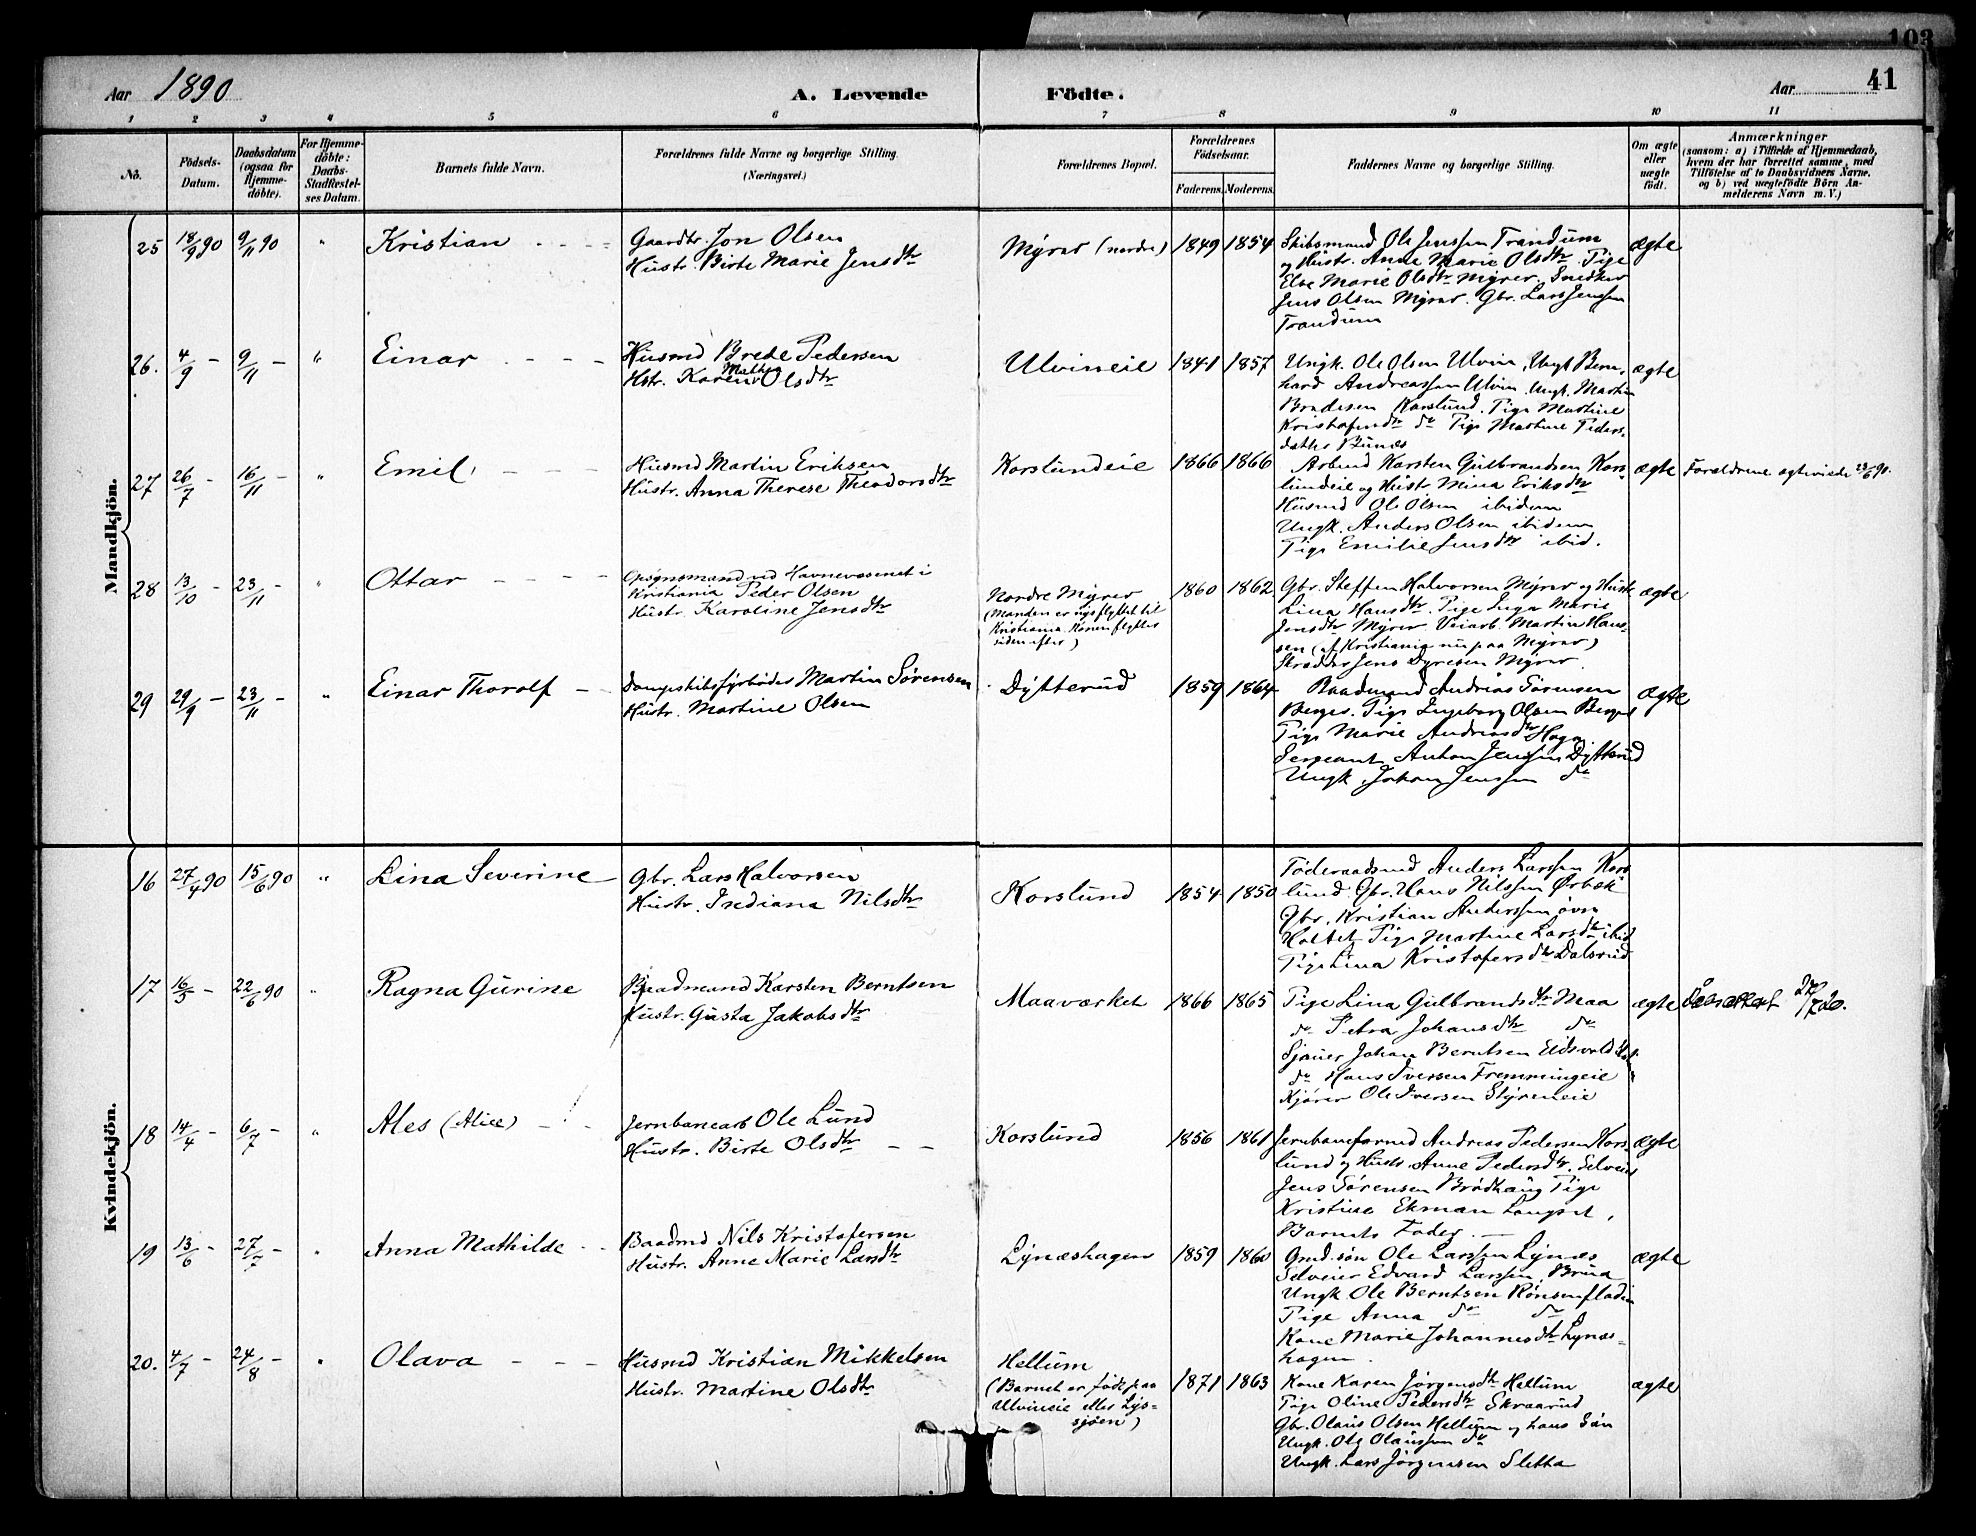 103
41
Aar 1890
A. Levende Födte.
Aar
1 2 3 4 5 6 7 8 9 10 11
No.
Födsels-Datum.
Daabsdatum (ogsaa for Hjemme-döbte).
For Hjemme-döbte: Daabs-Stadfæstel-ses Datum.
Barnets fulde Navn.
Forældrenes fulde Navne og borgerlige Stilling. (Næringsvei.)
Forældrenes Bopæl.
Forældrenes Födselsaar.
Faderens. Moderens.
Faddernes Navne og borgerlige Stilling.
Om ægte eller uægte födt.
Anmærkninger
(saasom: a) i Tilfælde af Hjemmedaab, hvem der har forrettet samme, med Tilföielse af to Daabsvidners Navne, og b) ved uægtefödte Börn An-melderens Navn m. V.)
Mandkjön.
25 18/9 90 9/11 90 " Kristian
Gaardbr. Jon Olsen
Hustr. Birte Marie Jensdtr
Myrer (nordre) 1849 1854
Skibsmand Ole Jenssen Trandum
og Hustr. Anne Marie Olsdtr. Pige
Else Marie Olsdtr Myrer. Snedker
Jens Olsen Myrer. Gbr. Lars Jenssen
Trandum
ægte
26. 4/9 - 9/11 - " Einar
Husmd Brede Pedersen
Hstr. Karen Mathea Olsdtr
Ulvineie 1841 1857
Ungk. Ole Olsen Ulvin, Ungk Bern-
hard Andreassen Ulvin. Ungk. Martin
Bredesen Korslund. Pige Martine
Kristofersdtr do Pige Martine Peders-
datter Bunes
ægte
27 26/7 - 16/11 - " Emil
Husmd Martin Eriksen
Hustr. Anna Therese Theodorsdtr
Korslundeie 1866 1866
Arbmd Karsten Gulbrandsen Kors-
lundeie og Hustr Mina Eriksdtr
Husmd Ole Olsen ibidem
Ungk. Anders Olsen ibidem
Pige Emilie Jensdtr ibid.
ægte Forældrene ægteviede 23/6 90.
28 13/10 - 23/11 - " Ottar
Opsynsmand ved Havnevæsenet i
Kristiania Peder Olsen
Hustr. Karoline Jensdtr
Nordre Myrer
(Manden er nys flyttet til
Kristiania. Konen flytter
siden efter)
1860 1862
Gbr. Steffen Halvorsen Myrer og Hustr
Lina Hansdtr. Pige Inga Marie
Jensdtr Myrer Veiarb. Martin Hans-
sen (af Kristiania nu paa Myrer)
Skrædder Jens Dyresen Myrer.
ægte
29 29/9 - 23/11 - " Einar Thoralf
Dampskibsfyrböder Martin Sørensen
Hustr. Martine Olsen
Dytterud 1859 1864
Baadmand Andreas Sørensen
Berger. Pige Ingeborg Olsen Berger
Pige Marie Andreasdtr Haga
Sergeant Anton Jenssen Dytterud
Ungk. Johan Jenssen do
ægte
Kvindekjön.
16 27/4 90 15/6 90 " Lina Severine
Gbr. Lars Halvorsen
Hustr. Indiana Nilsdtr
Korslund 1854 1850
Föderaadsmd Anders Larssen Kors-
lund Gbr. Hans Nilssen Ørbæk
Gbr. Kristian Anderssen øvre
Holtet Pige Martine Larsdtr ibid
Pige Lina Kristofersdtr Dalsrud
17 16/5 - 22/6 90 " Ragna Gurine
Baadmand Karsten Berntsen
Hustr. Gusta Jakobsdtr
Maaværket 1866 1865
Pige Lina Gulbrandsdtr Maa
do Petra Johansdtr do
Sjauer Johan Berntsen Eidsvold
do Hans Iversen Fremmingeie
Kjører Ole Iversen Styreneie
ægte Døbsattest 27/7 20.
18 14/4 - 6/7 - " Ales (Alice)
Jernbanearb Ole Lund
Hustr. Birte Olsdtr
Korslund 1856 1861
Jernbaneformd Andreas Pedersen Kors-
lund og Hustr. Anne Pedersdtr. Selveier
Jens Sørensen Brødhaug Pige
Kristine Ekman Langset,
Barnets Fader.
ægte
19 13/6 - 27/7 - " Anna Mathilde
Baadmd Nils Kristofersen
Hustr. Anne Marie Larsdtr
Lynæshagen 1859 1860
Grmd.søn Ole Larssen Lynæs
Selveier Edvard Larssen, Brua
Ungk Ole Berntsen Rønsenfladin
Pige Anna do do
Kone Marie Johannesdtr Lynæs-
hagen.
ægte
20. 4/7 - 24/8 - " Olava
Husmd Kristian Mikkelsen
Hustr. Martine Olsdtr.
Hellum
(Barnet er født paa
Ulvineie eller Lys-
sjøen)
1871 1863
Kone Karen Jørgensdtr Hellum
Pige Oline Pedersdtr Skraarud
Gbr. Olaus Olsen Hellum og hans Søn
Ungk. Ole Olaussen do
Ungk. Lars Jørgensen Sletta
ægte